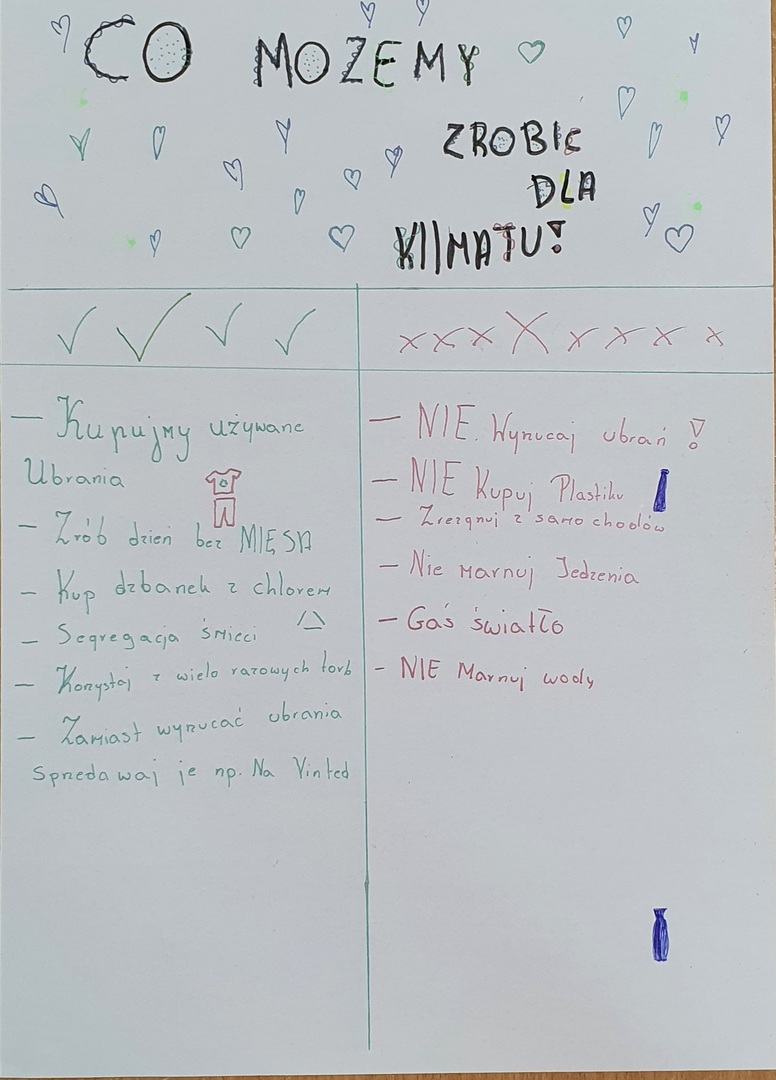 CO MOŻEMY
ZROBIĆ
DLA
KLIMATU!
- Kupujmy używane
Ubrania
- Zrób dzień bez MIĘSA
- Kup dzbanek z chlorem
- Segregacja śmieci
- Korzystaj z wielo razowych torb
- Zamiast wyrzucać ubrania
Sprzedawaj je np. Na Vinted
- NIE. Wyrzucaj ubrań !
- NIE Kupuj Plastiku
- Zrezgnuj z samo chodów
- Nie marnuj Jedzenia
- Gaś światło
- NIE Marnuj wody